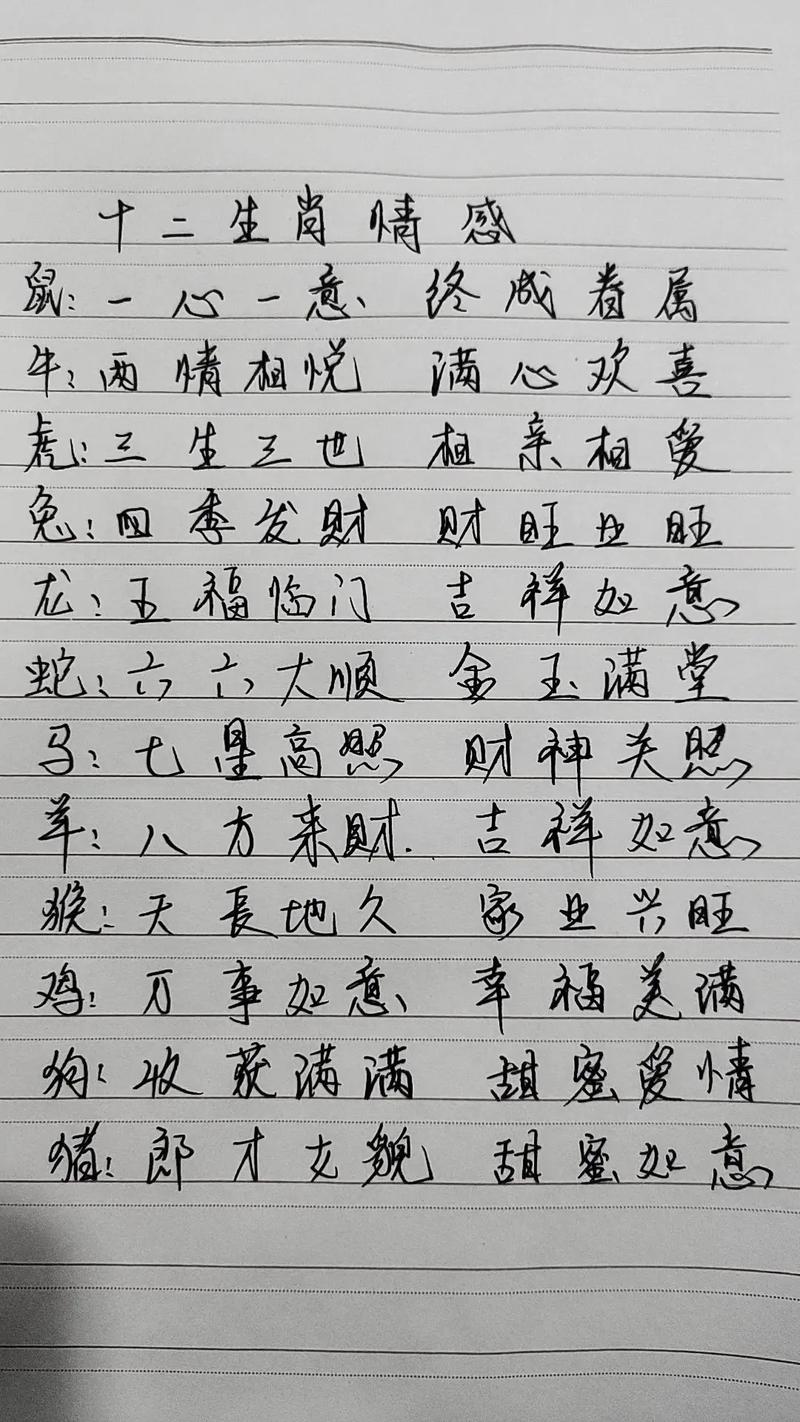 十二生肖情感
鼠：一心一意、终成眷属
牛：两情相悦 满心欢喜
虎：三生三世 相亲相爱
兔：四季发财 财旺业旺
龙：五福临门 吉祥如意
蛇：六六大顺 金玉满堂
马：七星高照 财神关照
羊：八方来财. 吉祥如意
猴：天長地久 家业兴旺
鸡：万事如意、幸福美满
狗：收获满满 甜蜜爱情
猪：郎才女貌 甜蜜如意